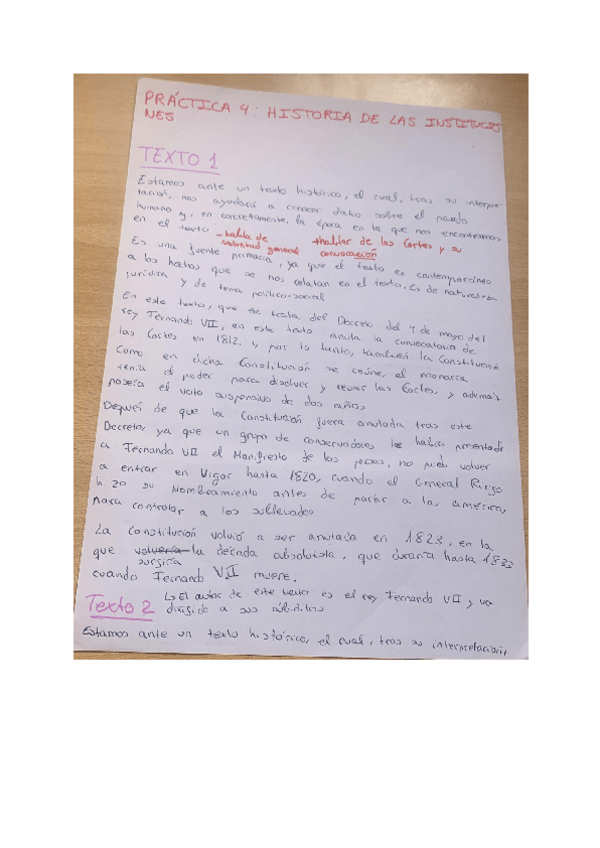 PRÁCTICA 4: HISTORIA DE LAS INSTITUCIO
NES
TEXTO 1
Estamos ante un texto histórico, el cual, tras su interpre-
tación, nos ayudará a conocer datos sobre el pasado
humano y, en concretamente, la época en la que nos encontramos
en el texto.
- habla de voluntad general
+hablar de las Cortes y su convocación
Es una fuente primaria, ya que el texto es contemporáneo
a los hechos que se nos relatan en el texto. Es de naturaleza
jurídica y de tema político-social
En este texto, que se trata del Decreto del 4 de mayo del
rey Fernando VII, en este texto anula la convocatoria de
las Cortes en 1812, y por lo tanto, también la Constitución
Como en dicha Constitución se reúne, el monarca
tenía el poder para disolver y reunir las Cortes, y además
poseía el voto suspensivo de dos años
Después de que la Constitución fuera anulada tras este
Decreto, ya que un grupo de conservadores le había presentado
a Fernando VII el Manifiesto de los persas, no pudo volver
a entrar en vigor hasta 1820, cuando el General Riego
hizo su Nombramiento antes de partir a las américas,
para controlar a los sublevados
La Constitución volvió a ser anulada en 1823, en la
que volvería la década absolutista, que duraría hasta 1833
surgiría
cuando Fernando VII muere.
↳ El autor de este texto es el rey Fernando VII y va
dirigido a sus súbditos
Texto 2
Estamos ante un texto histórico, el cual, tras su interpretación,